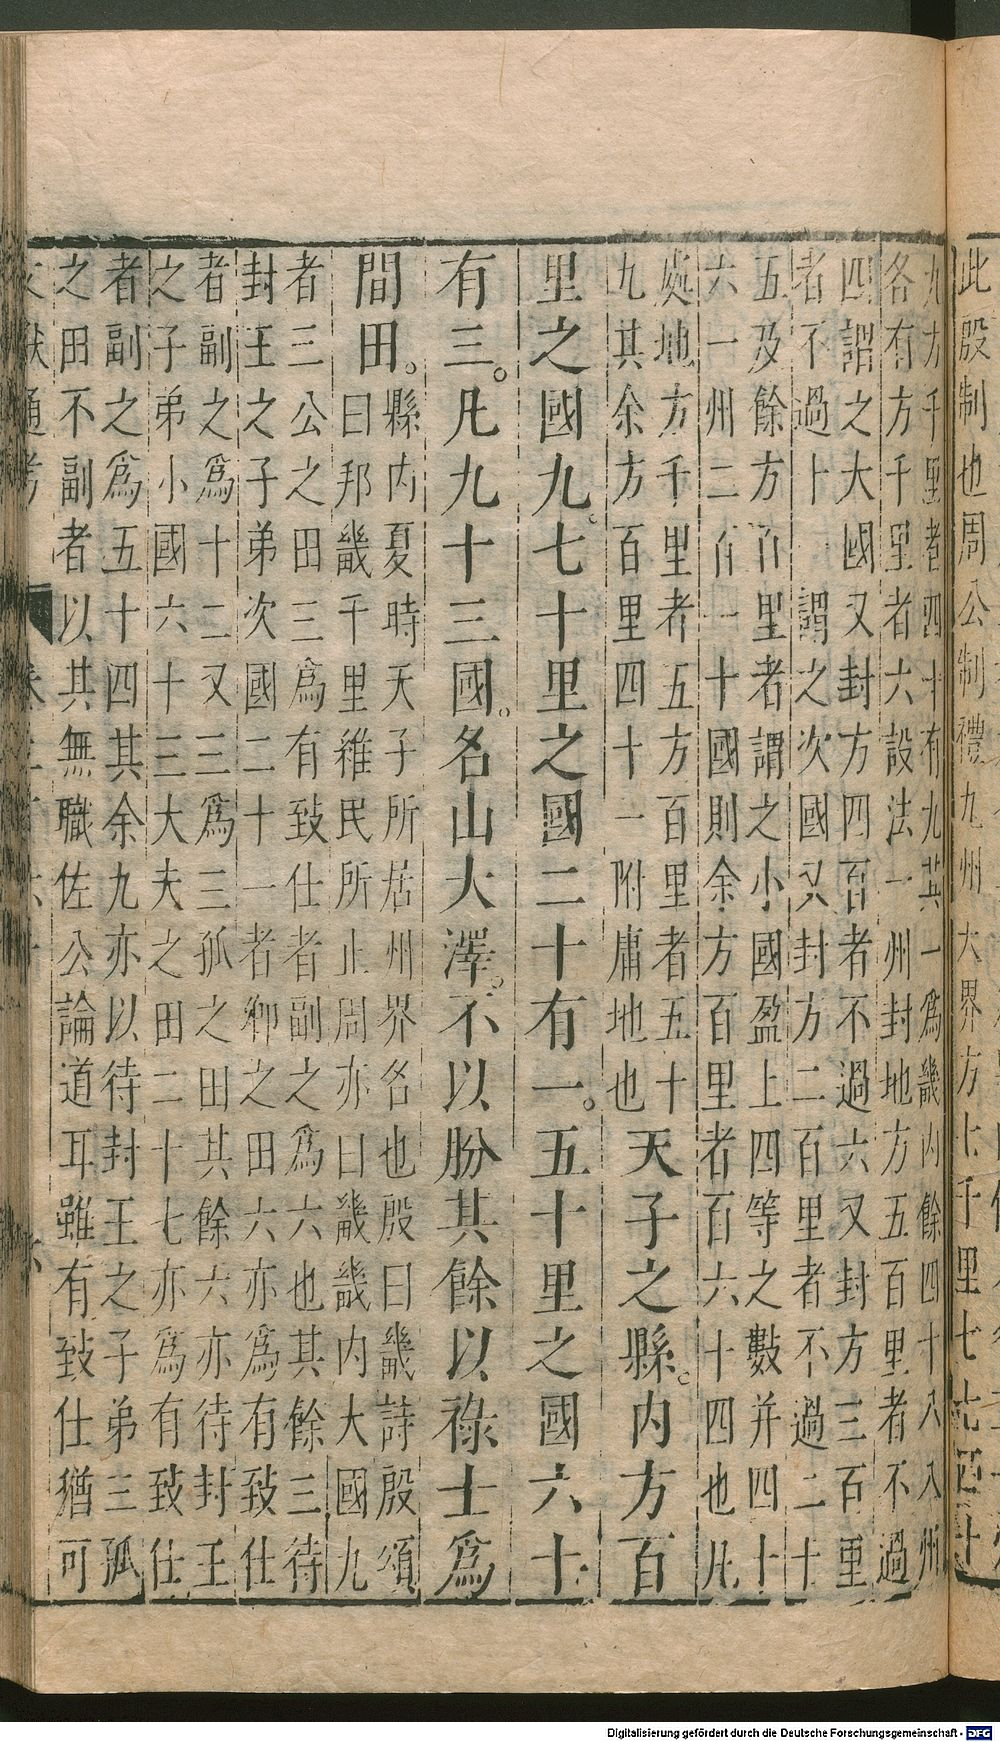 此殷制也周公制禮九州大界方七千里七七四十
九方千里者四十有九其一爲畿內餘四十八八州
各有方千里者六設法一州封地方五百里者不過
四謂之大國又封方四百者不過六又封方三百里
者不過十一謂之次國又封方二百里者不過二十
五及餘方百里者謂之小國盈上四等之數并四十
六一州二百一十國則余方百里者百六十四也凡
處地方千里者五方百里者五十
九其余方百里四十一附庸地也
天子之縣。內方百
里之國九。七十里之國二十有一。五十里之國六十
有三。凡九十三國。名山大澤。不以朌其餘以祿士爲
間田。
縣內夏時天子所居州界名也殷曰畿詩殷頌
曰邦畿千里維民所止周亦曰畿畿內大國九
者三公之田三爲有致仕者副之爲六也其餘三待
封王之子弟次國二十一者卿之田六亦爲有致仕
者副之爲十二又三爲三孤之田其餘六亦待封王
之子弟小國六十三大夫之田二十七亦爲有致仕
者副之爲五十四其余九亦以待封王之子弟三孤
之田不副者以其無職佐公論道耳雖有致仕猶可
Digitalisierung gefördert durch die Deutsche Forschungsgemeinschaft - DFG